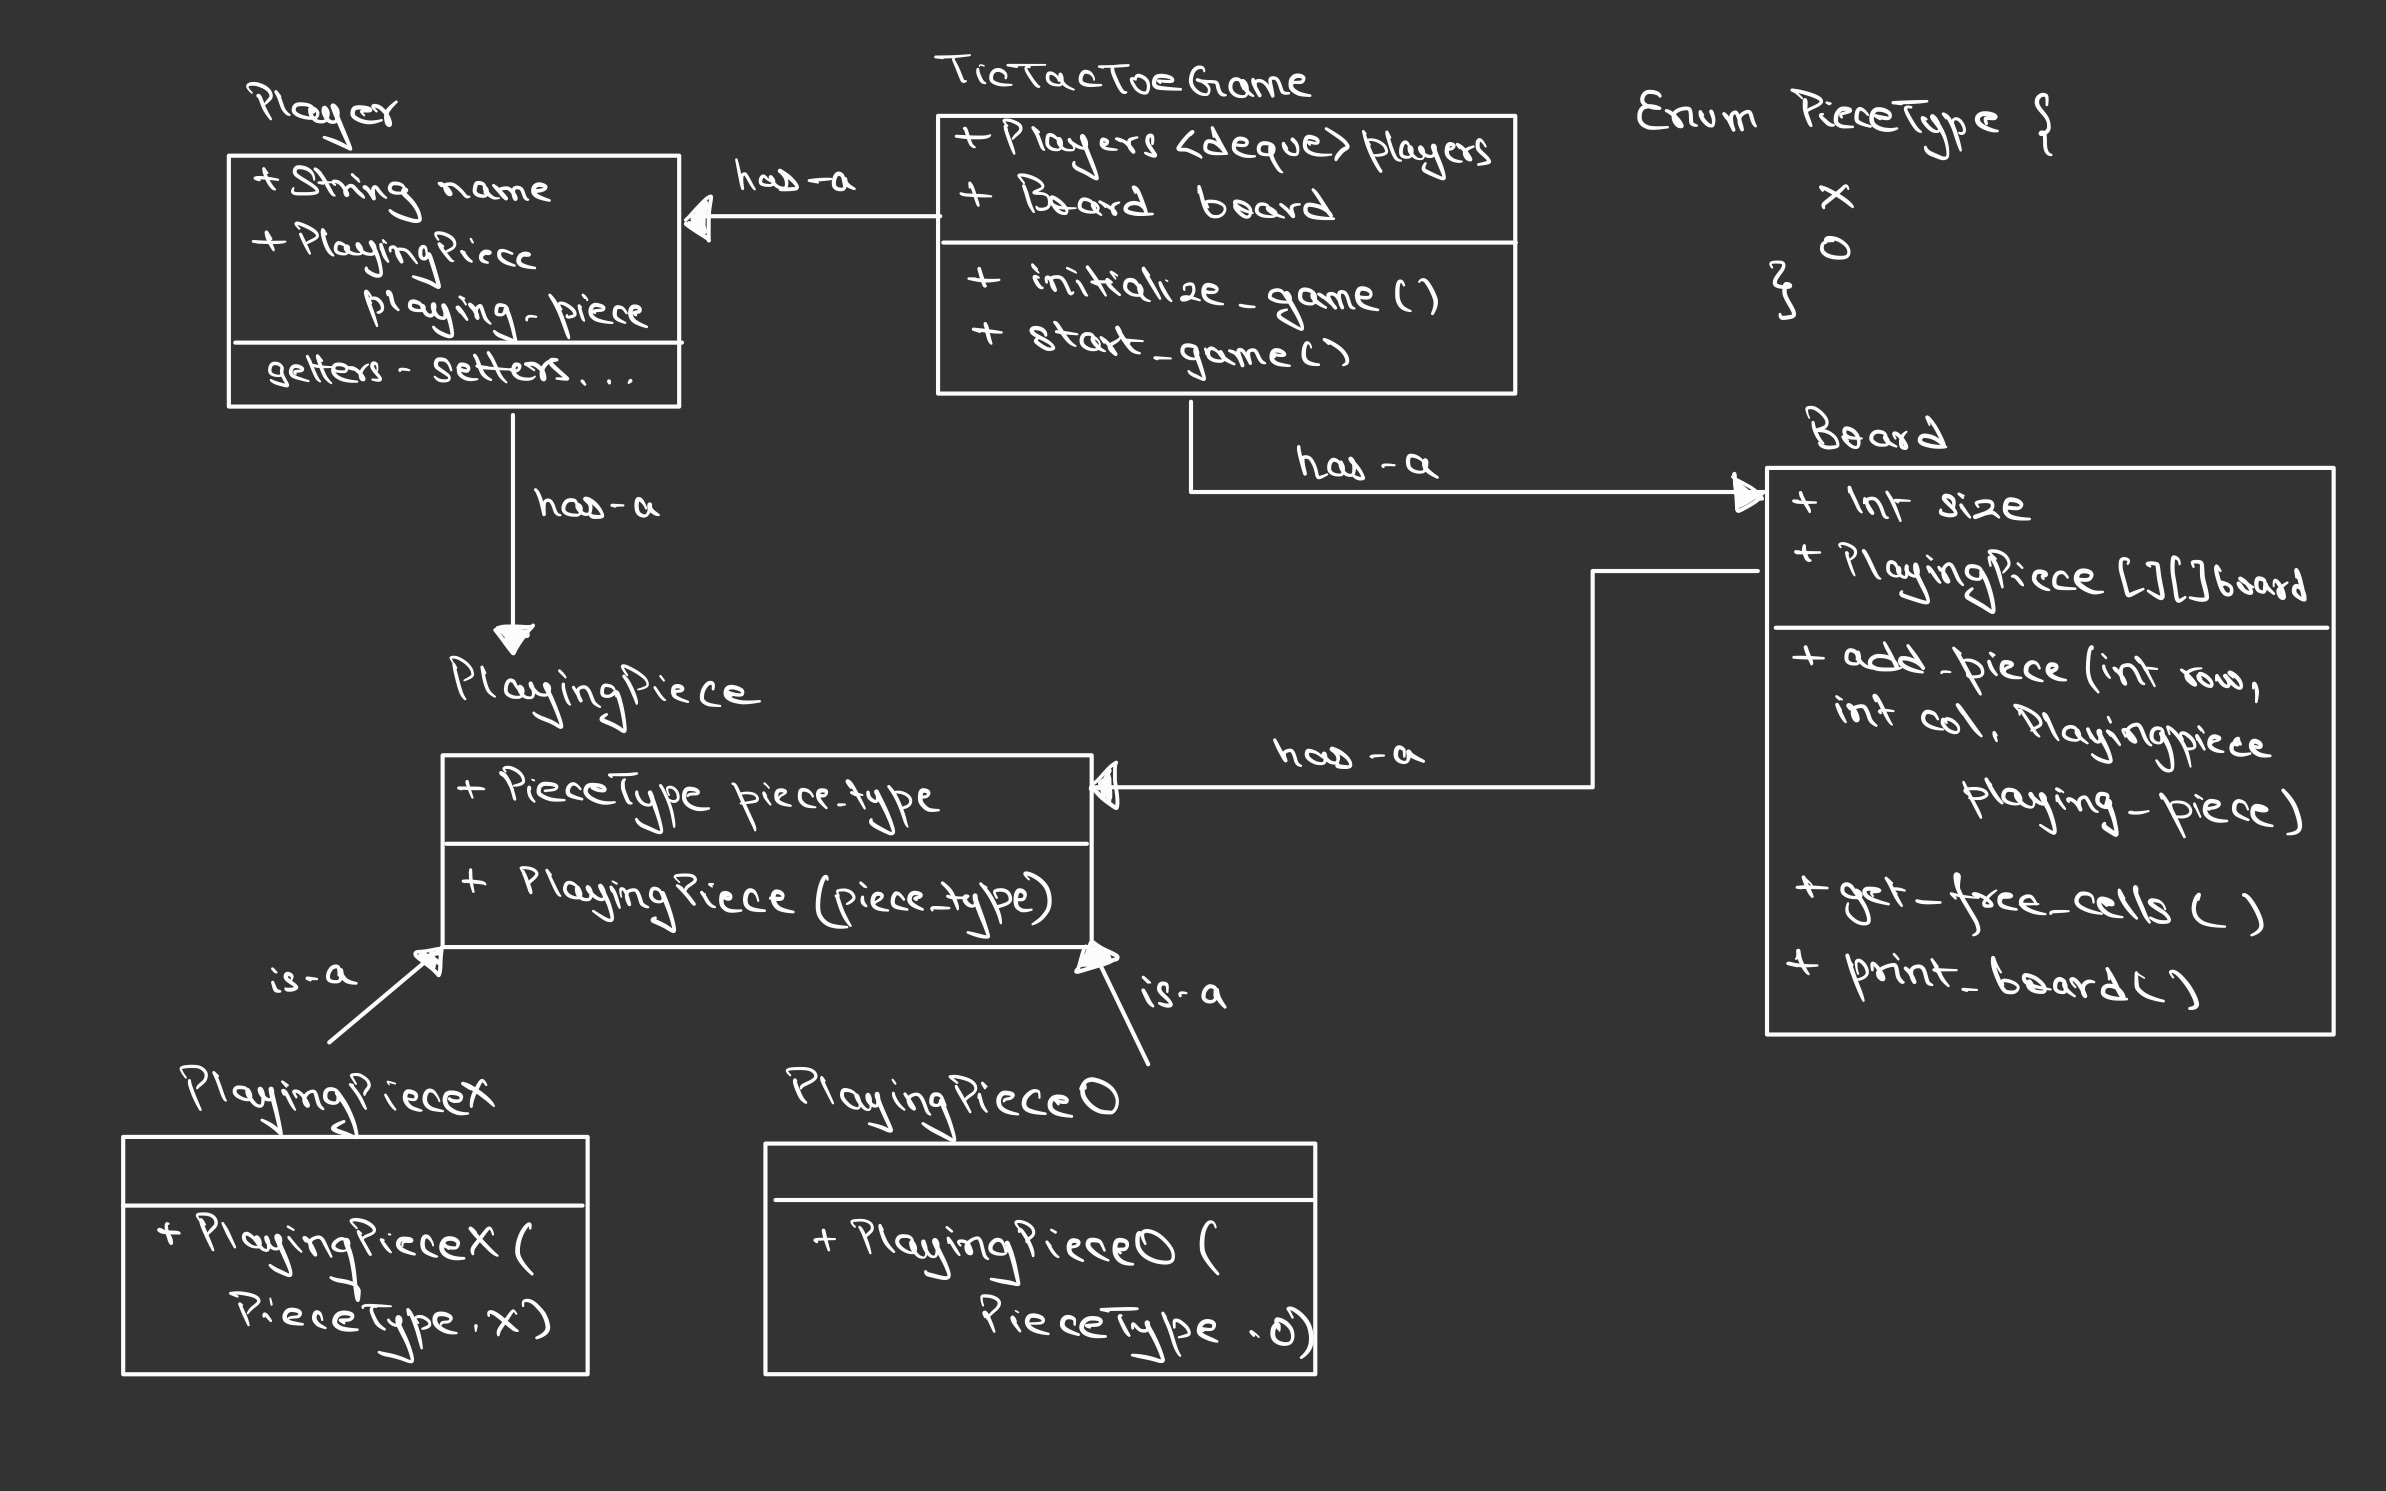 Player
+ String name
+ PlayingPiece
playing-piece
getters - setters...
has-a
TicTacToeGame
+ Players <deque> players
+ Board board
+ initialize_game()
+ start_game()
Enum PieceType {
X
O
}
has-a
has-a
Board
+ Int size
+ PlayingPiece [][] board
+ add_piece (int row,
int col, Playingpiece
playing_piece)
+ get_free_cells ( )
+ print_board( )
PlayingPiece
+ PieceType piece-type
+ PlayingPiece (piece_type)
has-a
is-a
is-a
PlayingPieceX
+ PlayingPieceX (
PieceType.X)
PlayingPieceO
+ PlayingPieceO (
PieceType.O)